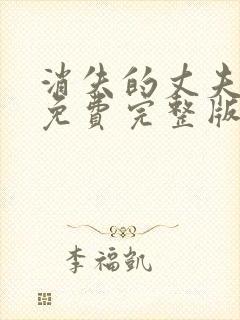 消失的丈夫
免費完整版
李福凱